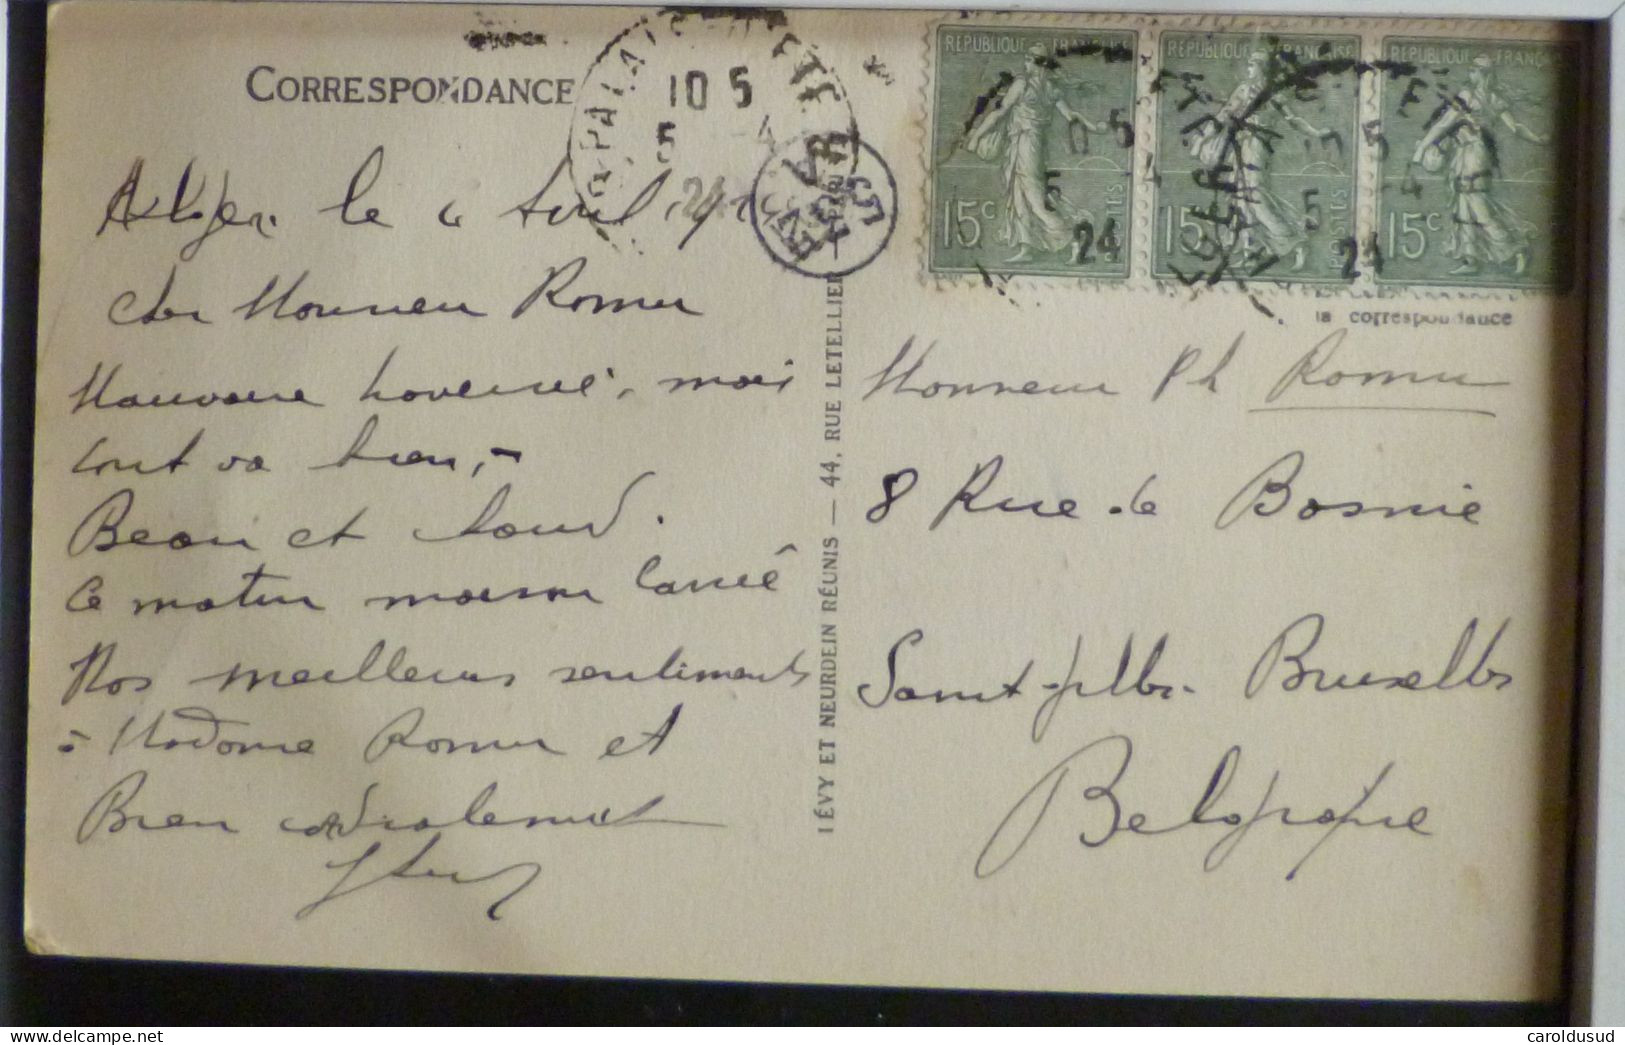 CORRESPONDANCE
Alger le 4 Avril 192
Cher Monsieur Romu
Mauvaise traversée, mais
tout va bien, -
Beau et chaud.
Ce matin
Nos meilleurs sentiments
à Madame Romu et
Bien cordialement
LÉVY ET NEURDEIN RÉUNIS — 44, RUE LETELLIER — PARIS
RÉPUBLIQUE FRANÇAISE
15c
RÉPUBLIQUE FRANÇAISE
15c
RÉPUBLIQUE FRANÇAISE
15c
10 5
5 -4
24
la correspondance
Monsieur Ph Romu
8 Rue de Bosnie
Saint-Gilles. Bruxelles
Belgique
caroldusud